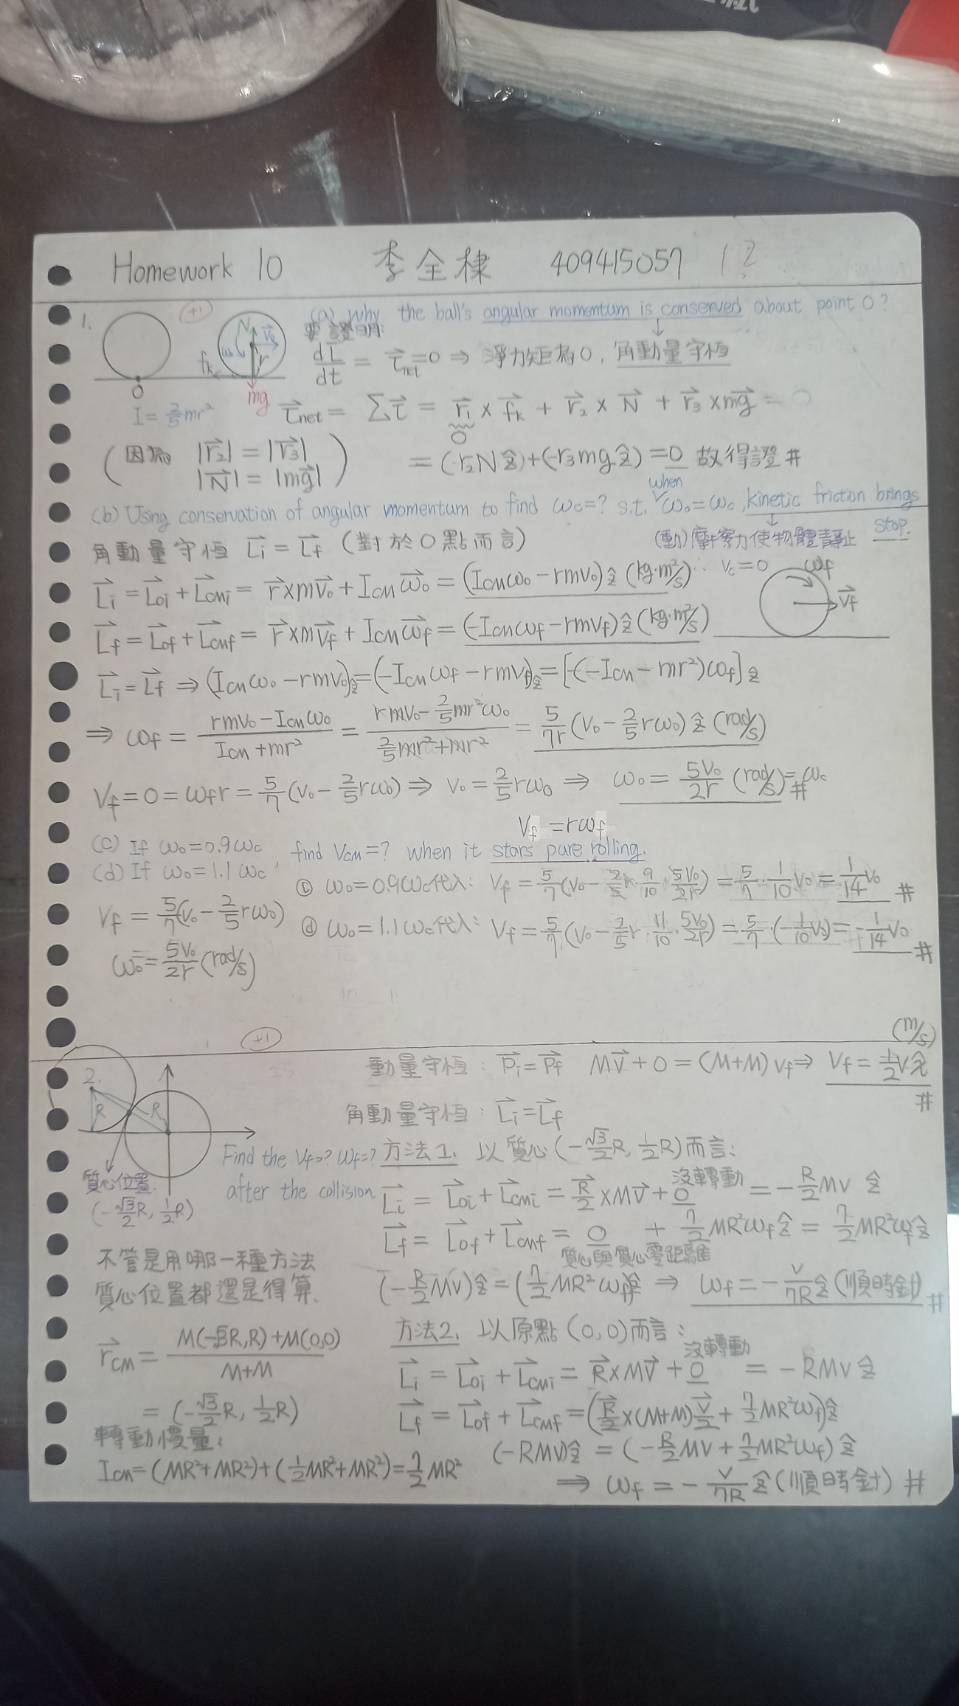 Homework 10 李全棣 409415057 12
1. +1 (a) why the ball's angular momentum is conserved about point O?
要證明:
dL⃗/dt = τ⃗net = 0 ⇒ 淨力矩為0, 角動量守恆
N V⃗0 ω0 r fk
O mg
I = 2/5 mr²
τ⃗net = Στ⃗ = r⃗1 × f⃗k + r⃗2 × N⃗ + r⃗3 × mg⃗ = 0
0
(因為 |r⃗2| = |r⃗3|
|N⃗| = |mg⃗|)
= (-r2N ẑ) + (-r3mg ẑ) = 0 故得證 #
(b) Using conservation of angular momentum to find ωc=? s.t. when ω0=ωc, kinetic friction brings stop.
角動量守恆 L⃗i = L⃗f (對於O點而言) (動)摩擦力使物體靜止 ∴ Vc=0
L⃗i = L⃗oi + L⃗cmi = r⃗×mv⃗0 + Icmω⃗0 = (Icmω0 - rmv0) ẑ (kg·m²/s)
ωf V⃗f
L⃗f = L⃗of + L⃗cmf = r⃗×mv⃗f + Icmω⃗f = (-Icmωf - rmvf) ẑ (kg·m²/s)
L⃗i = L⃗f ⇒ (Icmω0 - rmv0)ẑ = (-Icmωf - rmvf)ẑ = [(-Icm - mr²)ωf] ẑ
⇒ ωf = (rmv0 - Icmω0)/(Icm + mr²) = (rmv0 - 2/5 mr²ω0)/(2/5 mr² + mr²) = 5/7r (v0 - 2/5 rω0) ẑ (rad/s)
Vf = 0 = ωf r = 5/7 (v0 - 2/5 rω0) ⇒ v0 = 2/5 rω0 ⇒ ω0 = 5v0/2r (rad/s) = ωc #
Vf = rωf
(c) If ω0 = 0.9ωc, find Vcm=? when it stars pure rolling.
(d) If ω0 = 1.1ωc
ⓒ ω0 = 0.9ωc代入: Vf = 5/7 (v0 - 2/5 r · 9/10 · 5v0/2r) = 5/7 · 1/10 v0 = 1/14 v0 #
Vf = 5/7 (v0 - 2/5 rω0)
ⓓ ω0 = 1.1ωc代入: Vf = 5/7 (v0 - 2/5 r · 11/10 · 5v0/2r) = 5/7 · (-1/10 v0) = -1/14 v0 #
ω0 = 5v0/2r (rad/s)
+1 (m/s)
2. R R
動量守恆: P⃗i = P⃗f MV⃗ + 0 = (M+M) Vf ⇒ Vf = 1/2 V x̂ #
角動量守恆: L⃗i = L⃗f
Find the Vf=? ωf=? after the collision
質心位置 (-√3/2 R, 1/2 R)
方法1. 以質心 (-√3/2 R, 1/2 R) 而言:
L⃗i = L⃗oi + L⃗cmi = R⃗/2 × MV⃗ + 0 = -R/2 MV ẑ
沒轉動
L⃗f = L⃗of + L⃗cmf = 0 + 7/2 MR²ωf ẑ = 7/2 MR²ωf ẑ
質心與質心零距離
(-R/2 MV) ẑ = (7/2 MR²ωf) ẑ ⇒ ωf = -V/7R ẑ (順時針) #
不管是用哪一種方法
質心位置都還是得算.
r⃗CM = (M(-√3R, R) + M(0,0))/(M+M)
= (-√3/2 R, 1/2 R)
轉動慣量:
Icm = (MR²+MR²) + (1/2 MR²+MR²) = 7/2 MR²
方法2. 以原點 (0,0) 而言:
L⃗i = L⃗oi + L⃗cmi = R⃗×MV⃗ + 0 = -RMV ẑ
沒轉動
L⃗f = L⃗of + L⃗cmf = (R⃗/2 × (M+M) V⃗/2 + 7/2 MR²ωf) ẑ
(-RMV) ẑ = (-R/2 MV + 7/2 MR²ωf) ẑ
⇒ ωf = -V/7R ẑ (順時針) #